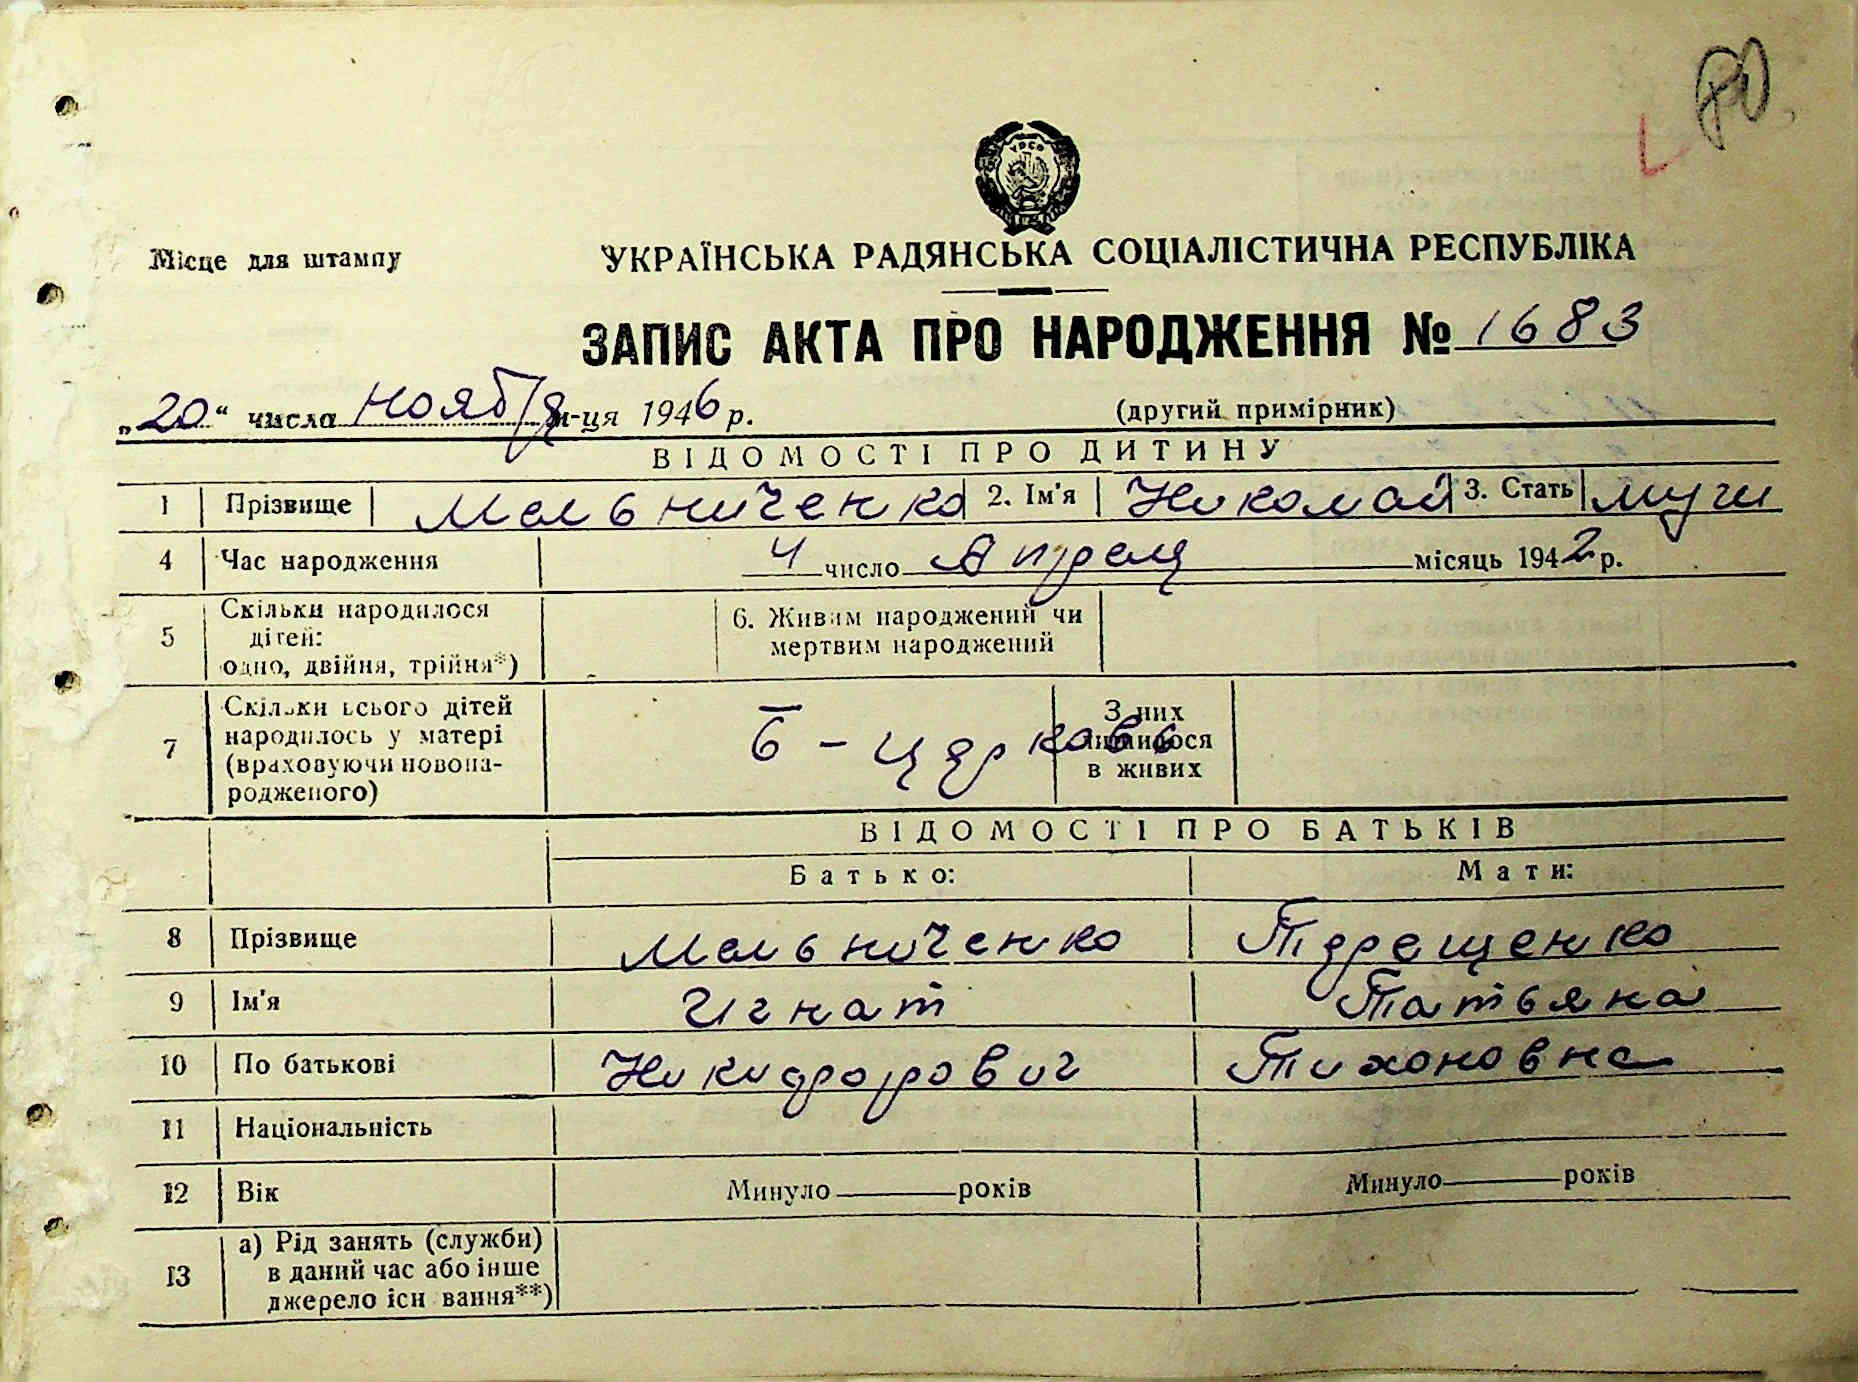 80
УРСР
Місце для штампу
УКРАЇНСЬКА РАДЯНСЬКА СОЦІАЛІСТИЧНА РЕСПУБЛІКА
ЗАПИС АКТА ПРО НАРОДЖЕННЯ № 1683
„20“ числа ноября м-ця 1946 р. (другий примірник)
ВІДОМОСТІ ПРО ДИТИНУ
1 Прізвище Мельниченко 2. Ім'я Николай 3. Стать муж
4 Час народження 4 число Апреля місяць 1942 р.
5 Скільки народилося дітей: одно, двійня, трійня*) 6. Живим народжений чи мертвим народжений
7 Скільки всього дітей народилось у матері (враховуючи новонародженого) Б-Церковь З них лишилося в живих
ВІДОМОСТІ ПРО БАТЬКІВ
Батько: Мати:
8 Прізвище Мельниченко Терещенко
9 Ім'я Игнат Татьяна
10 По батькові Никифорович Тихоновна
11 Національність
12 Вік Минуло років Минуло років
13 а) Рід занять (служби) в даний час або інше джерело існ вання**)